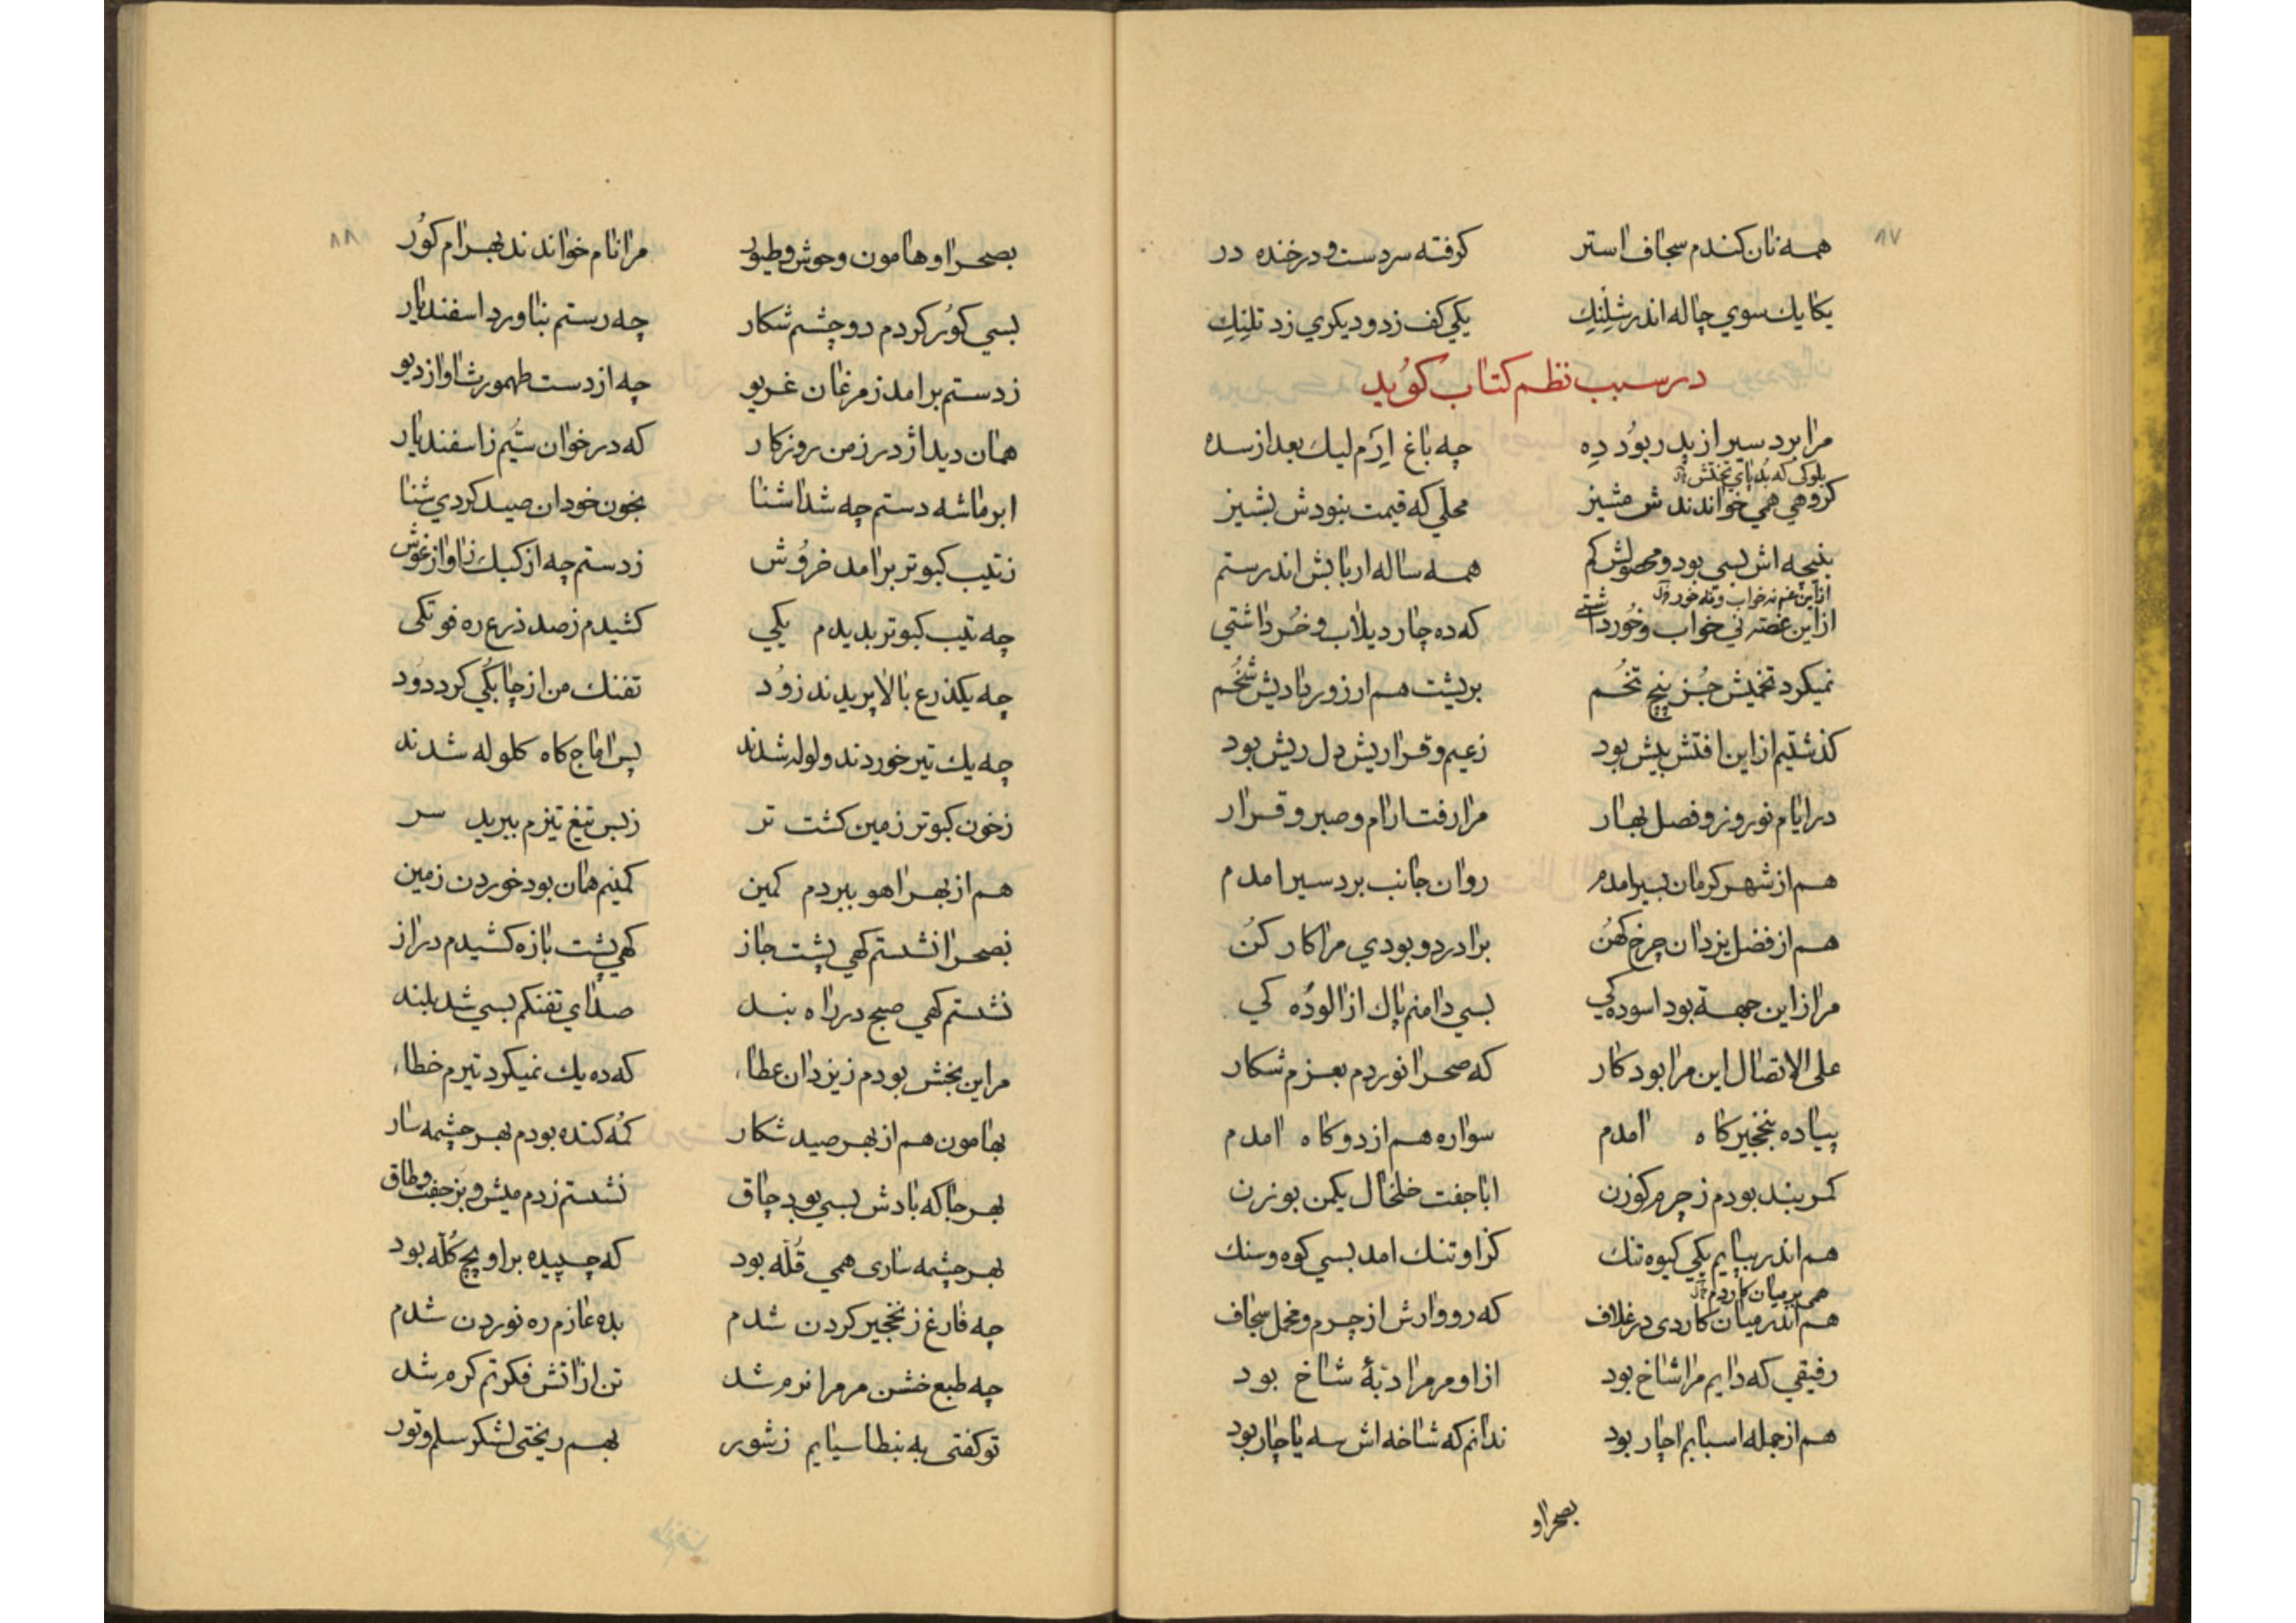 ٨٧
همه نان کندم سجاف استر کرفته سردست و درخنده در
یکایك سوي چاله اندر شلنِك یکي کف زد و دیکري زد تلنِك
در سبب نظم کتاب کوید
مرا برد سیر از پدر بود دِه چه باغ اِرَم لیك بعد از سده
بلوکی که بد پای تختش
کروهي همي خواندندش مشیز محلي که قیمت بنودش بشیز
بنیچه اش بسي بود و محصولش کم همه ساله اربابش اندر ستم
از این غم نه خواب و نه خورد
از این غصّه ني خواب و خورد داشتي که ده چار دیلاب و خُرداشتي
نمیکرد تخمیش جُز پنچ تخُم بریشت هم ارزوردادیش شُخُم
کذشتیم از این افتش بیش بود زعیم و قراریش دل ریش بود
در ایام نوروز و فصل بهار مرا رفت ارام و صبر و قرار
هم از شهر کرمان بسیر امدم روان جانب بردسیر امدم
هم از فضل یزدان چرخ کهُن برادر دو بودي مرا کار کنُ
مرا زاین جهة بود اسوده کي بسي دامنم پاك از الودُه کي
علی الاتصال این مرا بود کار که صحرا نوردم بعزم شکار
پیاده بنخجیرکاه امدم سواره هم از دوکاه امدم
کمر بند بودم ز چرم کوزن ابا جفت خلخال یکمن بوزن
هم اندر بپایم یکي کیوه تنك کزاو تنك امد بسي کوه و سنك
همی بر میان کاردم
هم اندر میان کاردی در غلاف که رو وارش از چرم و مخمل سجاف
رفیقي که دایم مرا شاخ بود ازاو مر مرا دبّۀ شاخ بود
هم از جمله اسبابم اچار بود ندانم که شاخه اش سه یا چار بود
بصحرا و
٨٨
بصحرا و هامون وحوش و طیور مرا نام خواندند بهرام کوُر
بسي کوُر کردم دو چشم شکار چه رستم بناورد اسفندیار
زدستم برامد ز مرغان غریو چه از دست طهمورث اواز دیو
همان دید اژدر ز من روزکار که در خوان سیُم ز اسفندیار
ابر ماشه دستم چه شد اشنا بخون خودان صید کردي شنا
زتیب کبوتر برامد خروُش زدستم چه از کبك زاواز غوش
چه تیب کبوتر بدیدم یکي کشیدم ز صد ذرع ره فوتکی
چه یکذرع بالا پریدند زوُد تفنك من از چابکُي کرد دوُد
چه یك تیر خوردند و لوله شدند پس اماج کاه کلوله شدند
زخون کبوتر زمین کشت تر زبس تیغ تیزم ببرید سر
هم از بهر اهو ببردم کمین کمینم همان بود خوردن زمین
بصحرا نشستم کهي پشت جاز کهي پشت بازه کشیدم دراز
نشستم کهي صبح در راه بند صداي تفنکم بسي شد بلند
مر این بخش بودم ز یزدان عطاء که ده یك نمیکرد تیرم خطاء
بهامون هم از بهر صید شکار کُه کنده بودم بهر چشمه سار
بهر جا که بادش بسي بود چاق نشستم زدم میش و بز جفت و طاق
بهر چشمه ساری همي قُلّه بود که چسپیده بر او پچ کُلّه بود
چه فارغ ز نخجیر کردن شدم بده عازم ره نوردن شدم
چه طبع خشن مر مرا نرم شد تن از اتش فکرتم کرم شد
تو کفتی به بنطاسیایم ز شور بهم ریختی لشکر سلم و تور